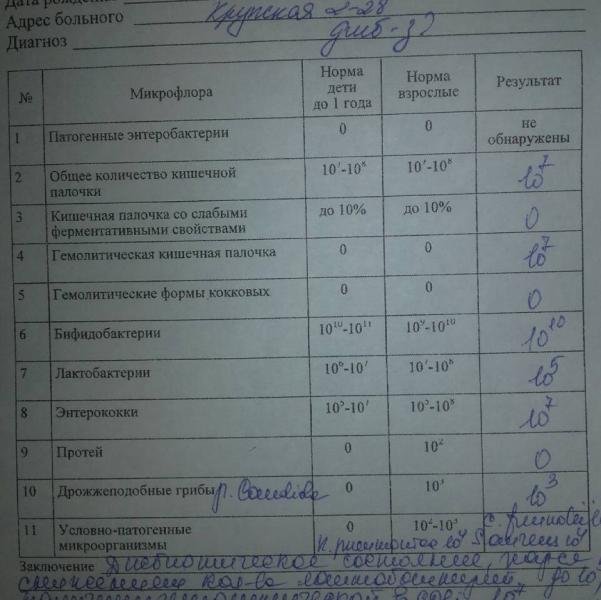 Дата рождения
Адрес больного Крупская 2-28
Диагноз
№ Микрофлора Норма дети до 1 года Норма взрослые Результат
1 Патогенные энтеробактерии 0 0 не обнаружены
2 Общее количество кишечной палочки 10⁷-10⁸ 10⁷-10⁸ 10⁷
3 Кишечная палочка со слабыми ферментативными свойствами до 10% до 10% 0
4 Гемолитическая кишечная палочка 0 0 10⁷
5 Гемолитические формы кокковых 0 0 0
6 Бифидобактерии 10¹⁰-10¹¹ 10⁹-10¹⁰ 10¹⁰
7 Лактобактерии 10⁶-10⁷ 10⁷-10⁸ 10⁵
8 Энтерококки 10⁵-10⁷ 10⁵-10⁸ 10⁷
9 Протей 0 10² 0
10 Дрожжеподобные грибы р. Candida 0 10³ 10³
11 Условно-патогенные микроорганизмы 0 10²-10³
Заключение Дисбиотическое состояние,
кол-ва лактобактерий до 10⁵